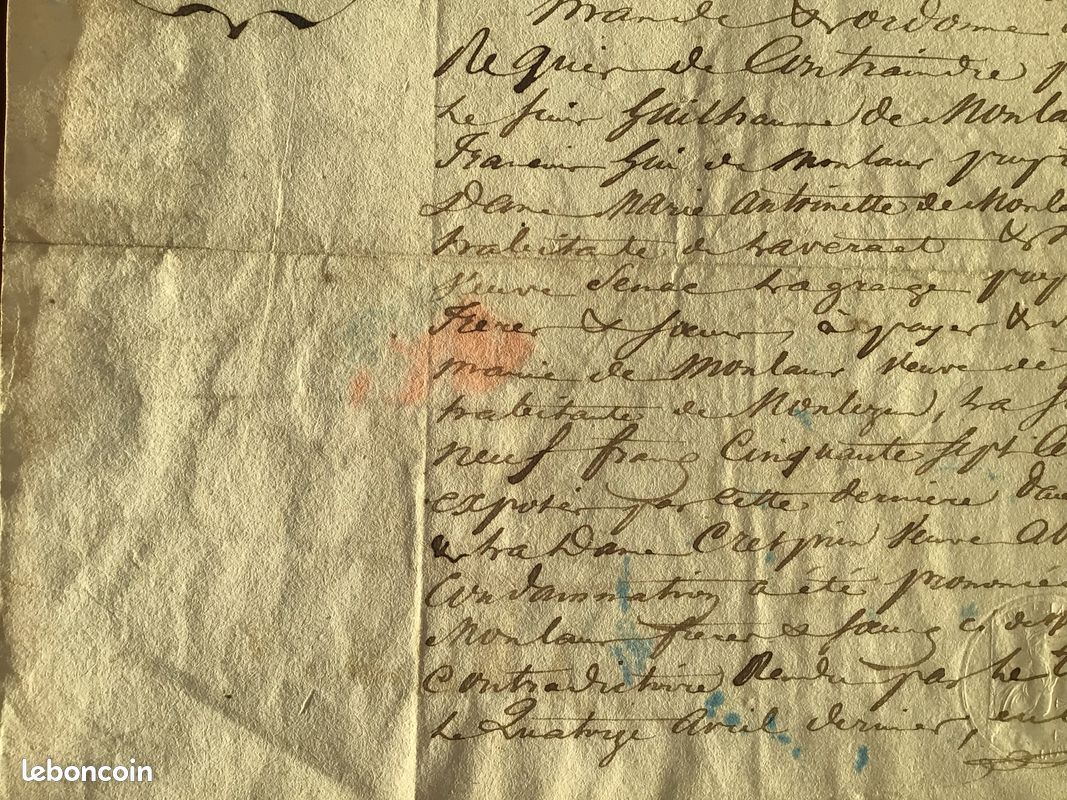 Mande & ordonne
Requier de Contraindre
Le sieur Guilhaume de Monla
Francois Gui de Monlaur
Dame Marie Antoinette de Monla
habitante de traveraet &
Veuve Senac Lagrange
Frerer & sœur, à payer &
marie de Monlaur Veuve de
habitante de Monlezun, La
neuf franc Cinquante sept
exposér par Cette derniere dan
La Dame Crespin Veuve
Condamnation a été prononcée
Monlaur frerer & sœurs ci
Contradictoire Rendu par Le
Le Quatorze avril dernier, en
leboncoin